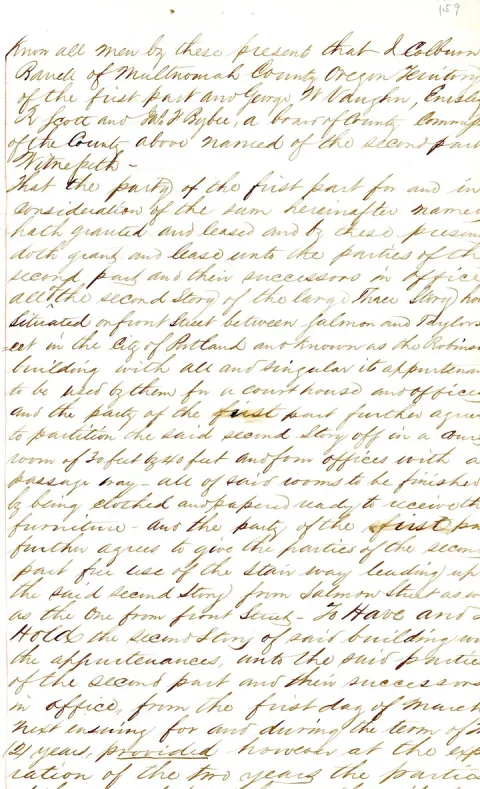 159
Know all men by these present that I Colburn
Barrell of Multnomah County Oregon Territory
of the first part and George W Vaughn,
R Scott and W Bybee, a board of County Commis
of the County above named of the second part
Witnesseth -
That the party of the first part for and in
consideration of the sum hereinafter named
hath granted and leased and by these presen
doth grant and lease unto the parties of th
second part and their successors in office
all of the second Story of the large Three Story ho
Situated on front Street between Salmon and Taylors
eet in the City of Portland and known as the Robinson
building with all and singular its appurtenan
to be used by them for a court house and offices
and the party of the first part further agrees
to partition the said second Story off in a cour
room of 30 feet by 40 feet and four offices with a
passage way - all of said rooms to be finished
by being clothed and papered ready to receive th
furniture - and the party of the first pa
further agrees to give the parties of the secon
part free use of the stair way leading up
the said second Story from Salmon Street as w
as the One from front Street - To Have and
Hold the second Story of said building wi
the appurtenances, unto the said partie
of the second part and their successors
in office, from the first day of March
next ensuing for and during the term of
(2) years, provided however at the exp
ration of the two years the partie